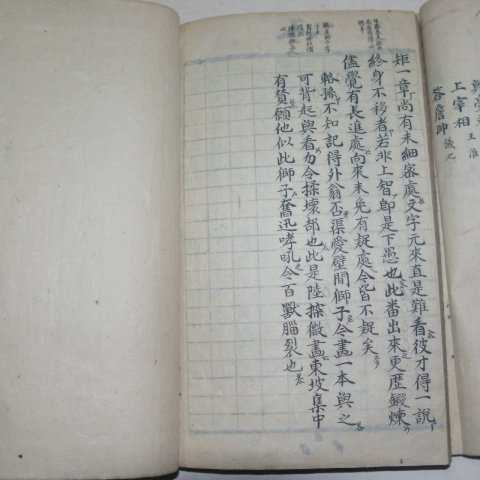 矩一章尚有未細密處文字元來直是難看彼才得一説
終身不移者若非上智卽是下愚也此番出來更歷鍛煉
儘覺有長進處向來未免有疑處今皆不疑矣
輅孫不知記得外翁否渠愛壁間獅子今畫一本與之
可背起與看勿令揉壞却也此是陸探微畫東坡集中
有贊願他似此獅子奮迅哮吼令百獸腦裂也
上宰相 王淮
答詹帥 儀之